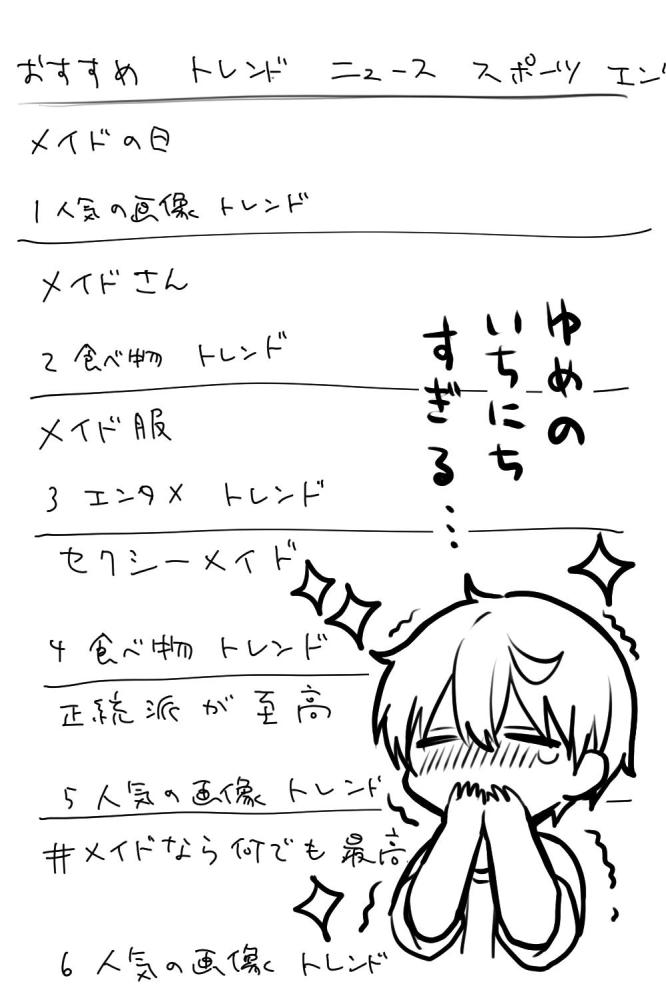 おすすめ トレンド ニュース スポーツ エン
メイドの日
1 人気の画像 トレンド
メイドさん
2 食べ物 トレンド
メイド服
3 エンタメ トレンド
セクシーメイド
4 食べ物 トレンド
正統派が至高
5 人気の画像 トレンド
#メイドなら何でも最高
6 人気の画像 トレンド
ゆめの
いちにち
すぎる…